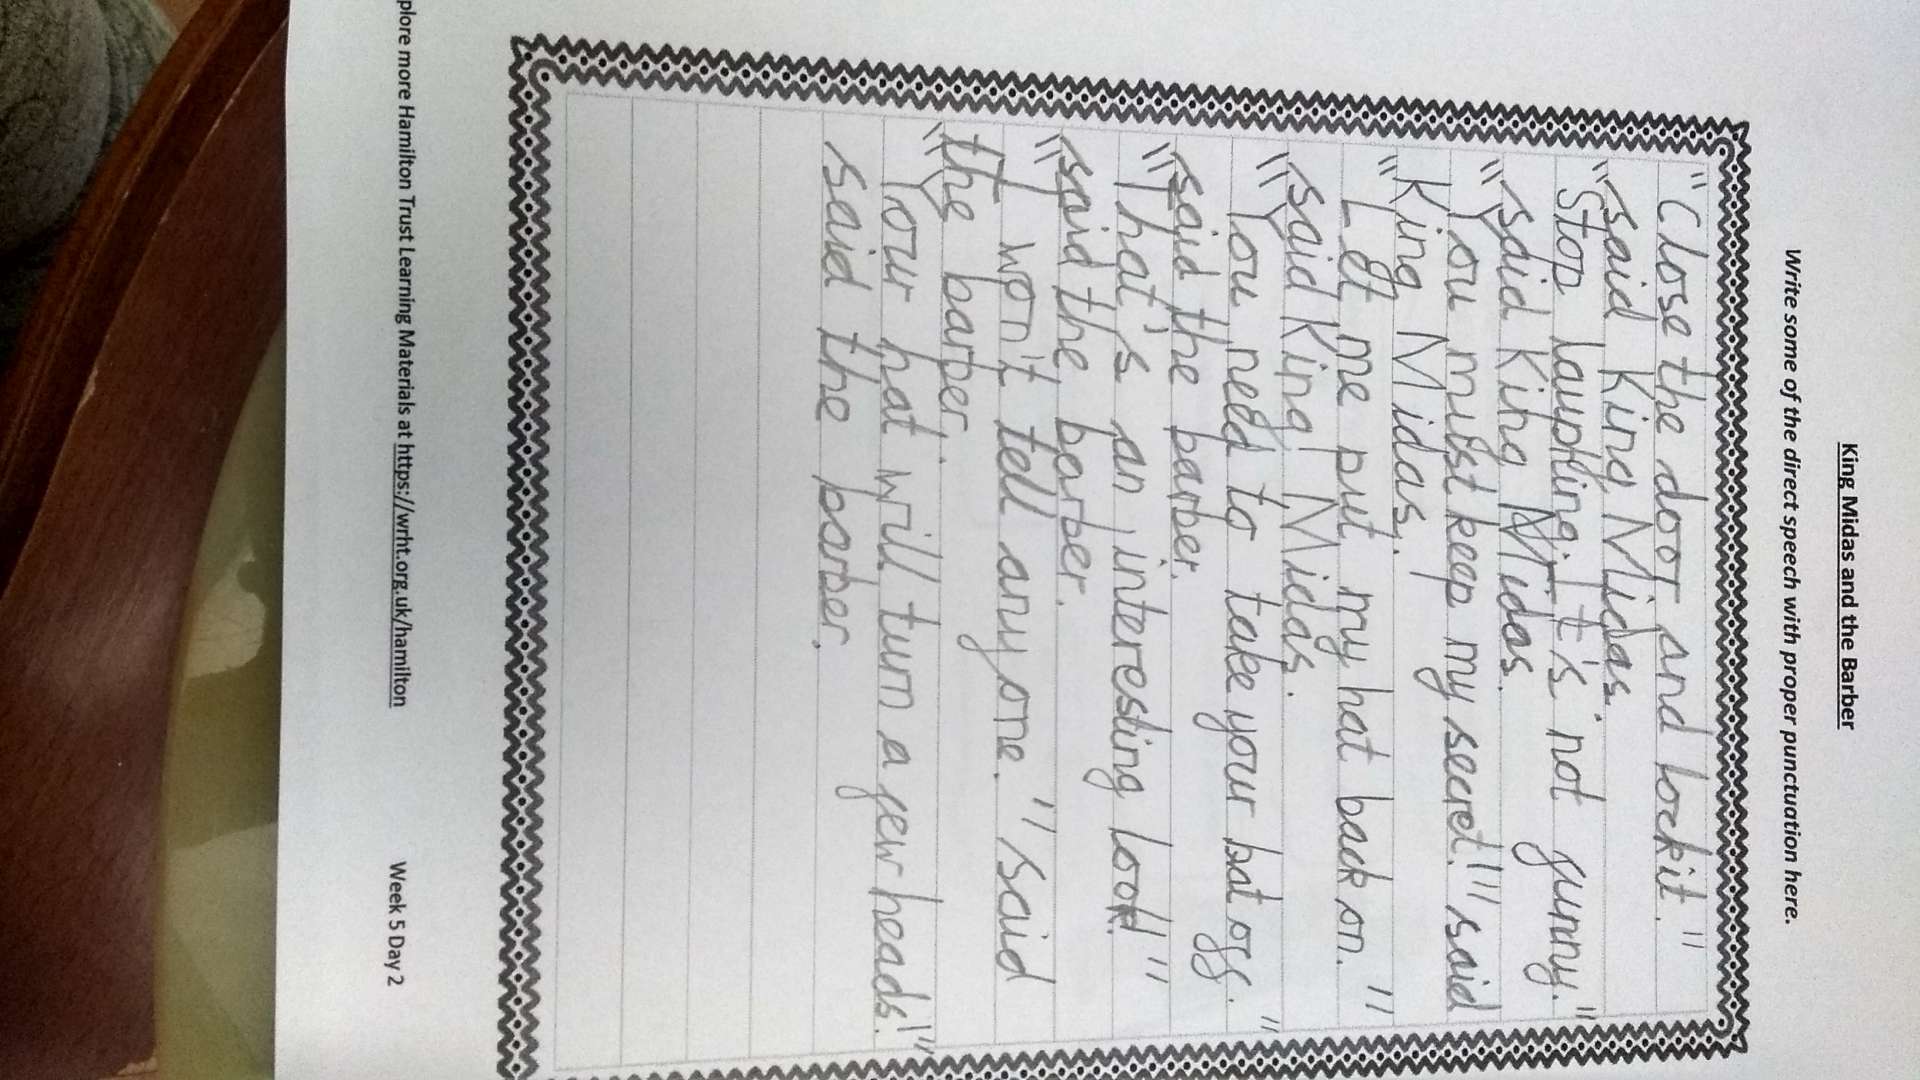 King Midas and the Barber
Write some of the direct speech with proper punctuation here.
"Close the door and lock it."
said King Midas.
"Stop laughing. It's not funny."
said King Midas.
"You must keep my secret!" said
King Midas.
"Let me put my hat back on."
said King Midas.
"You need to take your hat off."
said the barber.
"That's an interesting look!"
said the barber.
"I won't tell anyone." said
the barber.
"Your hat will turn a few heads!"
said the barber.
plore more Hamilton Trust Learning Materials at https://wrht.org.uk/hamilton
Week 5 Day 2